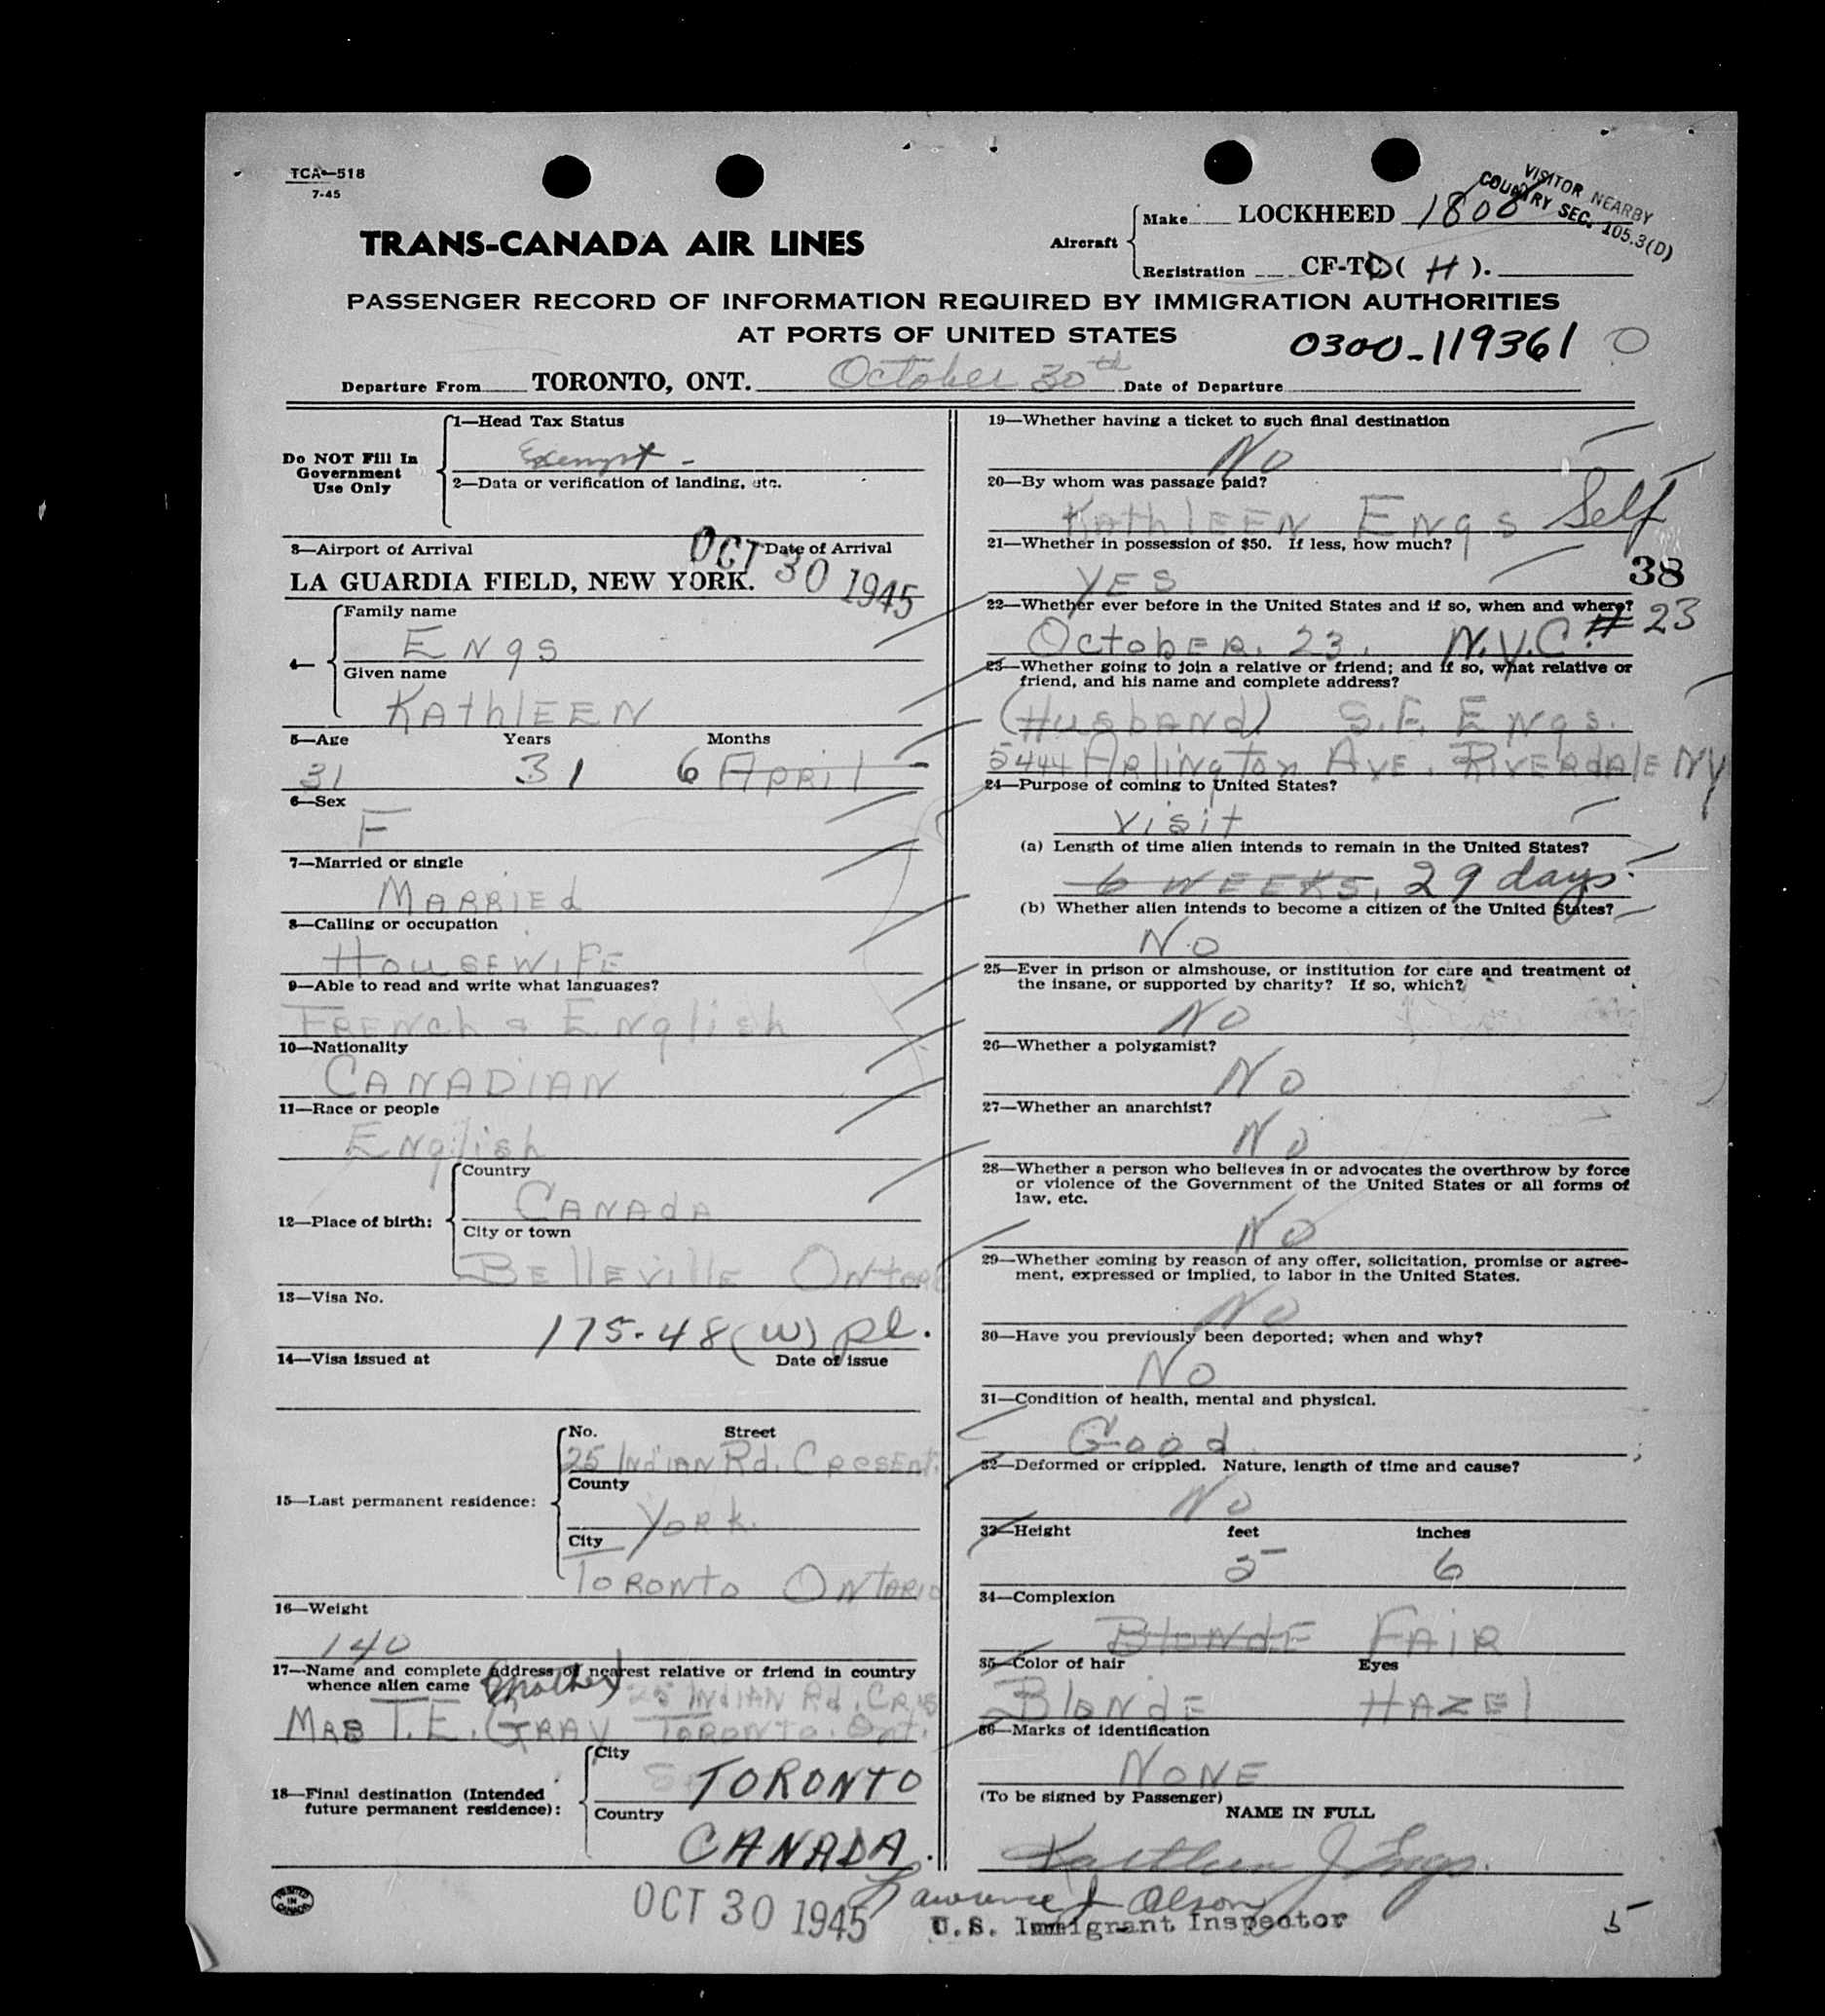 TCA—518
7-45
VISITOR NEARBY
COUNTRY SEC. 105.3(D)
TRANS-CANADA AIR LINES
Aircraft
Make LOCKHEED 1808
Registration CF-TC ( H ).
PASSENGER RECORD OF INFORMATION REQUIRED BY IMMIGRATION AUTHORITIES
AT PORTS OF UNITED STATES
0300-119361
Departure From TORONTO, ONT. October 30th Date of Departure
Do NOT Fill In
Government
Use Only
1—Head Tax Status
Exempt -
2—Data or verification of landing, etc.
3—Airport of Arrival Date of Arrival
LA GUARDIA FIELD, NEW YORK. OCT 30 1945
4—
Family name
Engs
Given name
KathlEEN
5—Age Years Months
31 31 6 April
6—Sex
F
7—Married or single
MARRIEd
8—Calling or occupation
HousEwiFE
9—Able to read and write what languages?
FRENch & English
10—Nationality
CANADIAN
11—Race or people
English
12—Place of birth:
Country
CANAdA
City or town
BEllEvillE Ontar
13—Visa No.
175-48 (W) pl.
14—Visa issued at Date of issue
15—Last permanent residence:
No. Street
25 INdIAN Rd. CRESENt.
County
YORK.
City
TORONto ONTARIO
16—Weight
140
17—Name and complete address of nearest relative or friend in country
whence alien came (mother) 25 INdIAN Rd. CRES
MRS T.E. GRAY TORONTO. Ont.
18—Final destination (Intended
future permanent residence):
City
TORONTO
Country
CANADA.
PRINTED
IN
CANADA
OCT 30 1945
19—Whether having a ticket to such final destination
No
20—By whom was passage paid?
KathlEEN Engs Self
21—Whether in possession of $50. If less, how much?
YES
38
22—Whether ever before in the United States and if so, when and where?
# 23
OctobER. 23. N.Y.C.
23—Whether going to join a relative or friend; and if so, what relative or
friend, and his name and complete address?
(HusbANd) S.F. Engs.
5444 ARlington AVE. RivERdalE NY
24—Purpose of coming to United States?
Visit
(a) Length of time alien intends to remain in the United States?
6 WEEKS, 29 days.
(b) Whether alien intends to become a citizen of the United States?
No
25—Ever in prison or almshouse, or institution for care and treatment of
the insane, or supported by charity? If so, which?
No
26—Whether a polygamist?
No
27—Whether an anarchist?
No
28—Whether a person who believes in or advocates the overthrow by force
or violence of the Government of the United States or all forms of
law, etc.
No
29—Whether coming by reason of any offer, solicitation, promise or agree-
ment, expressed or implied, to labor in the United States.
No
30—Have you previously been deported; when and why?
No
31—Condition of health, mental and physical.
Good
32—Deformed or crippled. Nature, length of time and cause?
No
33—Height feet inches
5 6
34—Complexion
BlondE FAIR
35—Color of hair Eyes
BlondE HAZEl
36—Marks of identification
NONE
(To be signed by Passenger)
NAME IN FULL
Kathleen J Engs.
Lawrence J Olson
U.S. Immigrant Inspector
5